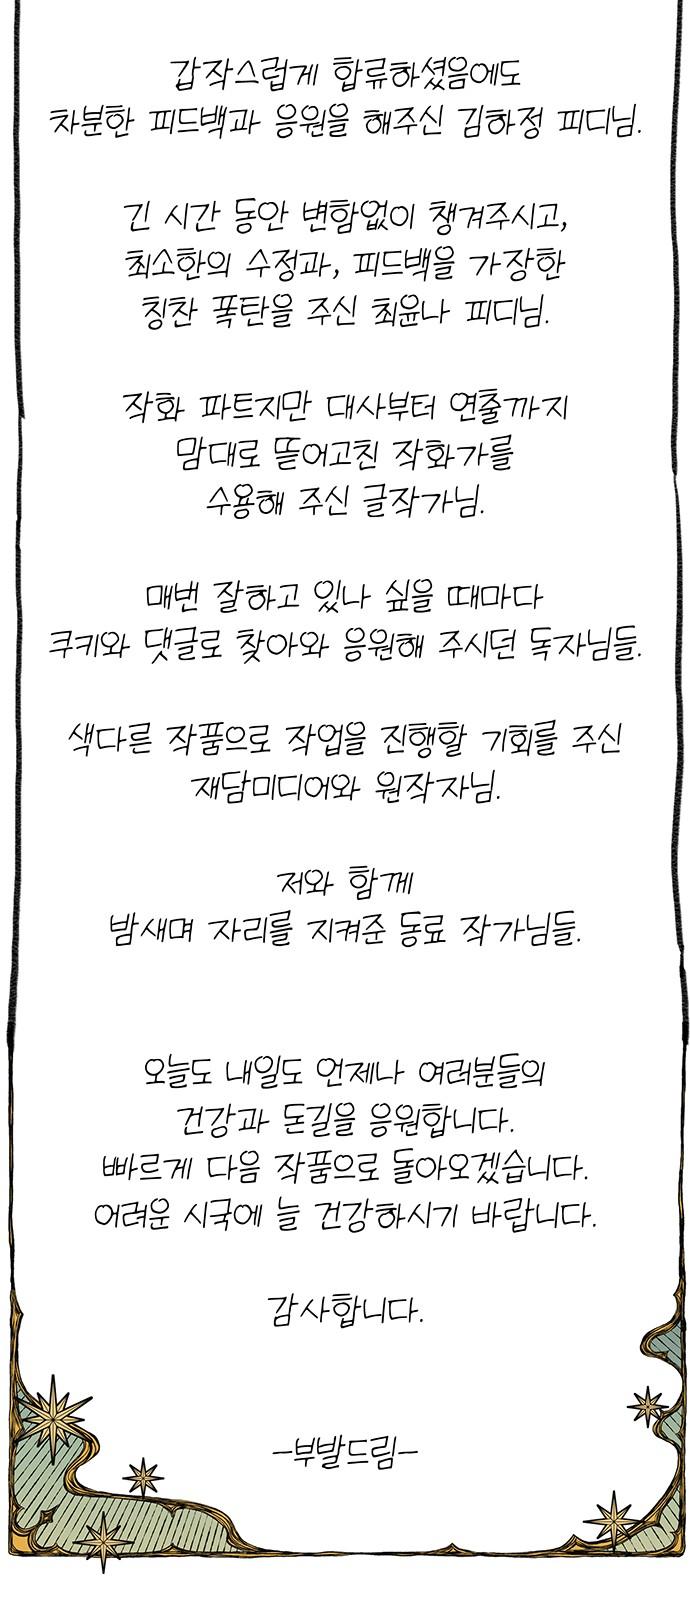 갑작스럽게 합류하셨음에도
차분한 피드백과 응원을 해주신 김하정 피디님.
긴 시간 동안 변함없이 챙겨주시고,
최소한의 수정과, 피드백을 가장한
칭찬 폭탄을 주신 최윤나 피디님.
작화 파트지만 대사부터 연출까지
맘대로 뜯어고친 작화가를
수용해 주신 글작가님.
매번 잘하고 있나 싶을 때마다
쿠키와 댓글로 찾아와 응원해 주시던 독자님들.
색다른 작품으로 작업을 진행할 기회를 주신
재담미디어와 원작자님.
저와 함께
밤새며 자리를 지켜준 동료 작가님들.
오늘도 내일도 언제나 여러분들의
건강과 돈길을 응원합니다.
빠르게 다음 작품으로 돌아오겠습니다.
어려운 시국에 늘 건강하시기 바랍니다.
감사합니다.
-부발드림-